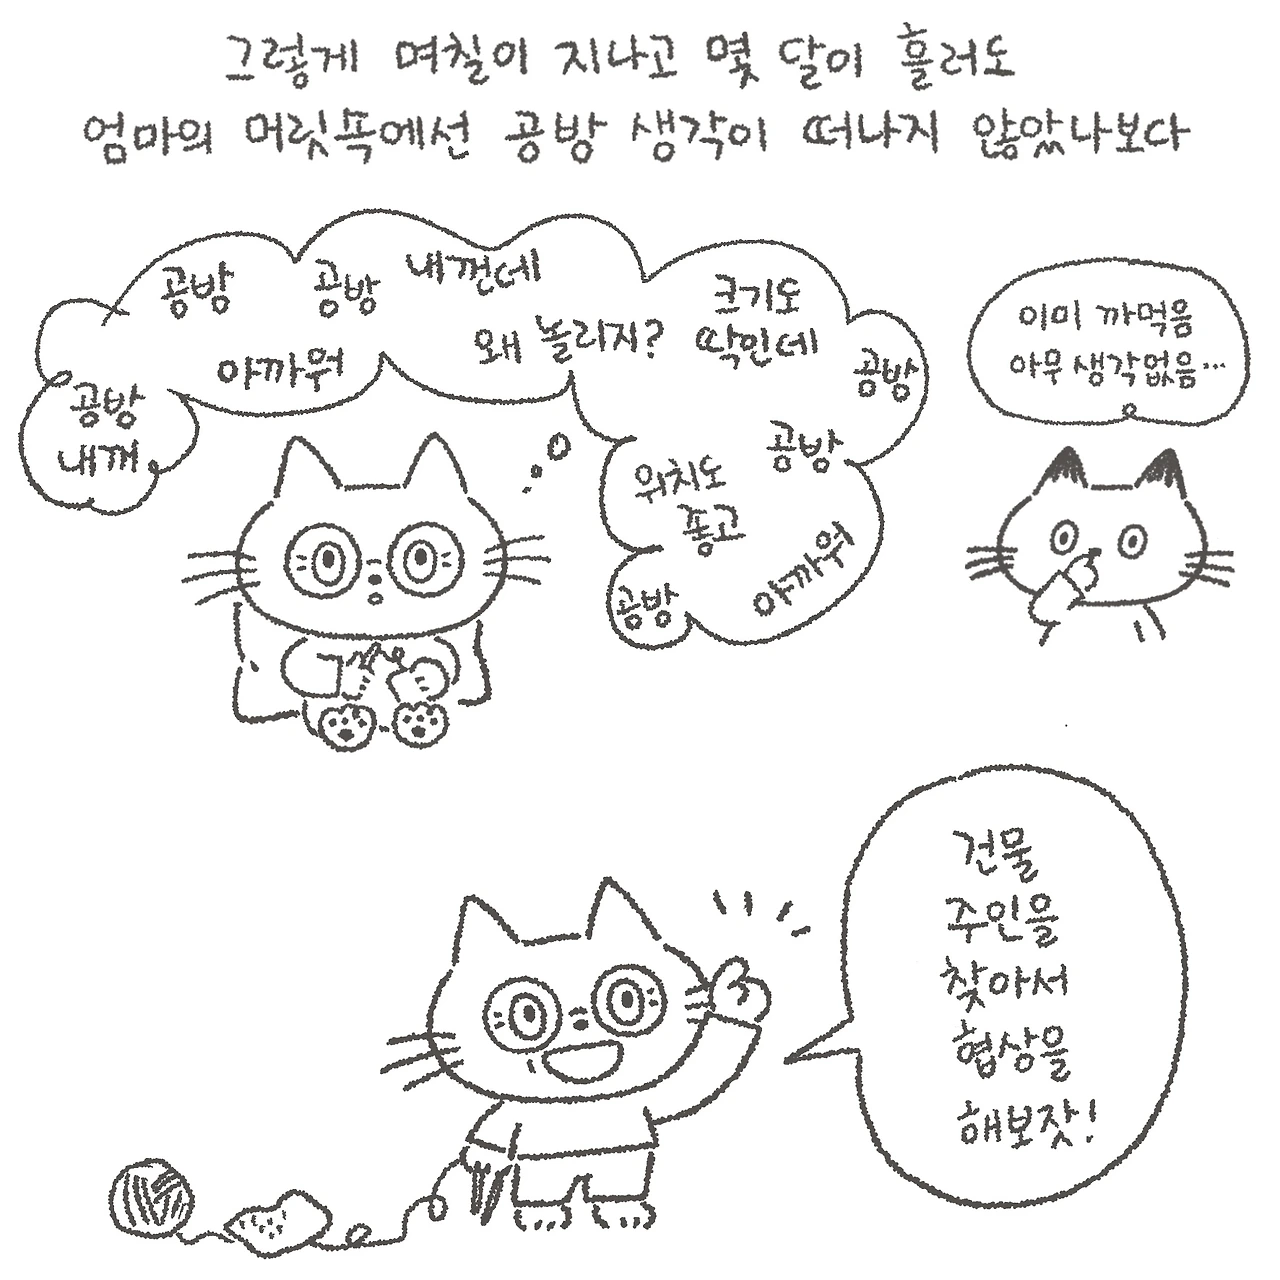 그렇게 며칠이 지나고 몇 달이 흘러도
엄마의 머릿쏙에선 공방 생각이 떠나지 않았나보다
공방
공방
내껀데
아까워
왜 놀리지?
크기도
딱인데
공방
공방
내꺼
공방
위치도
좋고
아까워
공방
이미 까먹음
아무 생각없음...
건물
주인을
찾아서
협상을
해보잣!